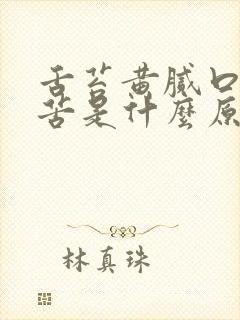 舌苔黄腻口
苦是什麼原
林真珠